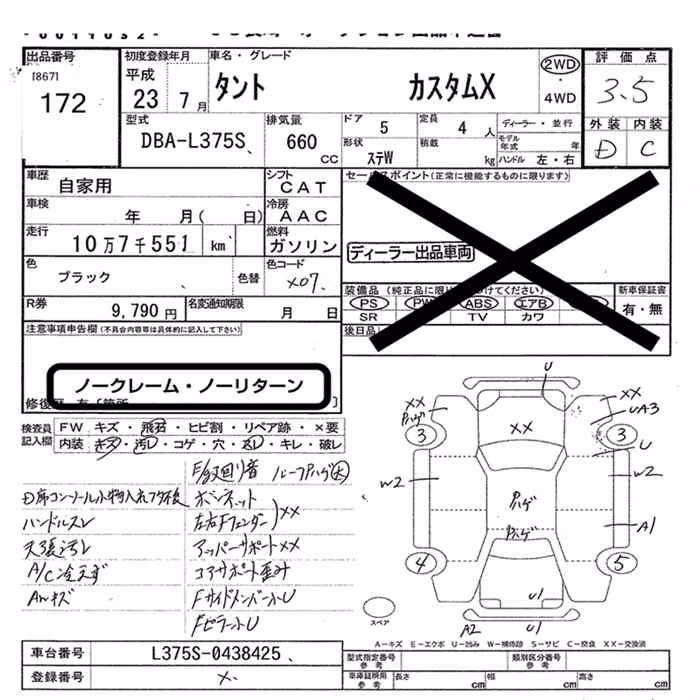 出品番号
[867]
172
初度登録年月
平成
23 7月
車名・グレード
タント カスタムX
2WD
・
4WD
評価点
3.5
外装 内装
D C
型式
DBA-L375S
排気量
660
CC
ドア
5
定員
4 人
ディーラー・並行
モデル年式 年
形状
ステW
積載
kg
ハンドル 左・右
車歴
自家用
シフト
CAT
車検
年 月( 日)
冷房
AAC
走行
10万7千551 km
燃料
ガソリン
色
ブラック
色替
色コード
X07
R券
9,790円
名変通知期限
月 日
セールスポイント(正常に機能するものに限ります)
ディーラー出品車両
装備品
PS PW ABS エアB
SR TV カワ
新車保証書
有・無
後日品
注意事項申告欄(不具合内容等は具体的に記入して下さい)
ノークレーム・ノーリターン
検査員記入欄
FW キズ・飛石・ヒビ割・リペア跡・×要
内装 キズ・汚レ・コゲ・穴・スレ・キレ・破レ
F/G 廻り音 ルーフハゲ大
D席コンソール小物入れフタ破
ハンドルスレ
天張汚レ
A/C冷えず
AWキズ
ボンネット
左右Fフェンダー XX
アッパーサポートXX
コアサポート歪み
FサイドメンバーU
FピラーU
U
XX
ハゲ
XX
XX
UA3
3
3
U
W2
W2
ハゲ
ハゲ
A1
4
5
U1
A2 U1
スペア
A-キズ E-エクボ U-凹み W-補修跡 S-サビ C-腐食 XX-交換済
車台番号
L375S-0438425
登録番号
×
型式指定番号
参考
類別区分番号
参考
車庫証明用
参考
長さ cm
幅 cm
高さ cm